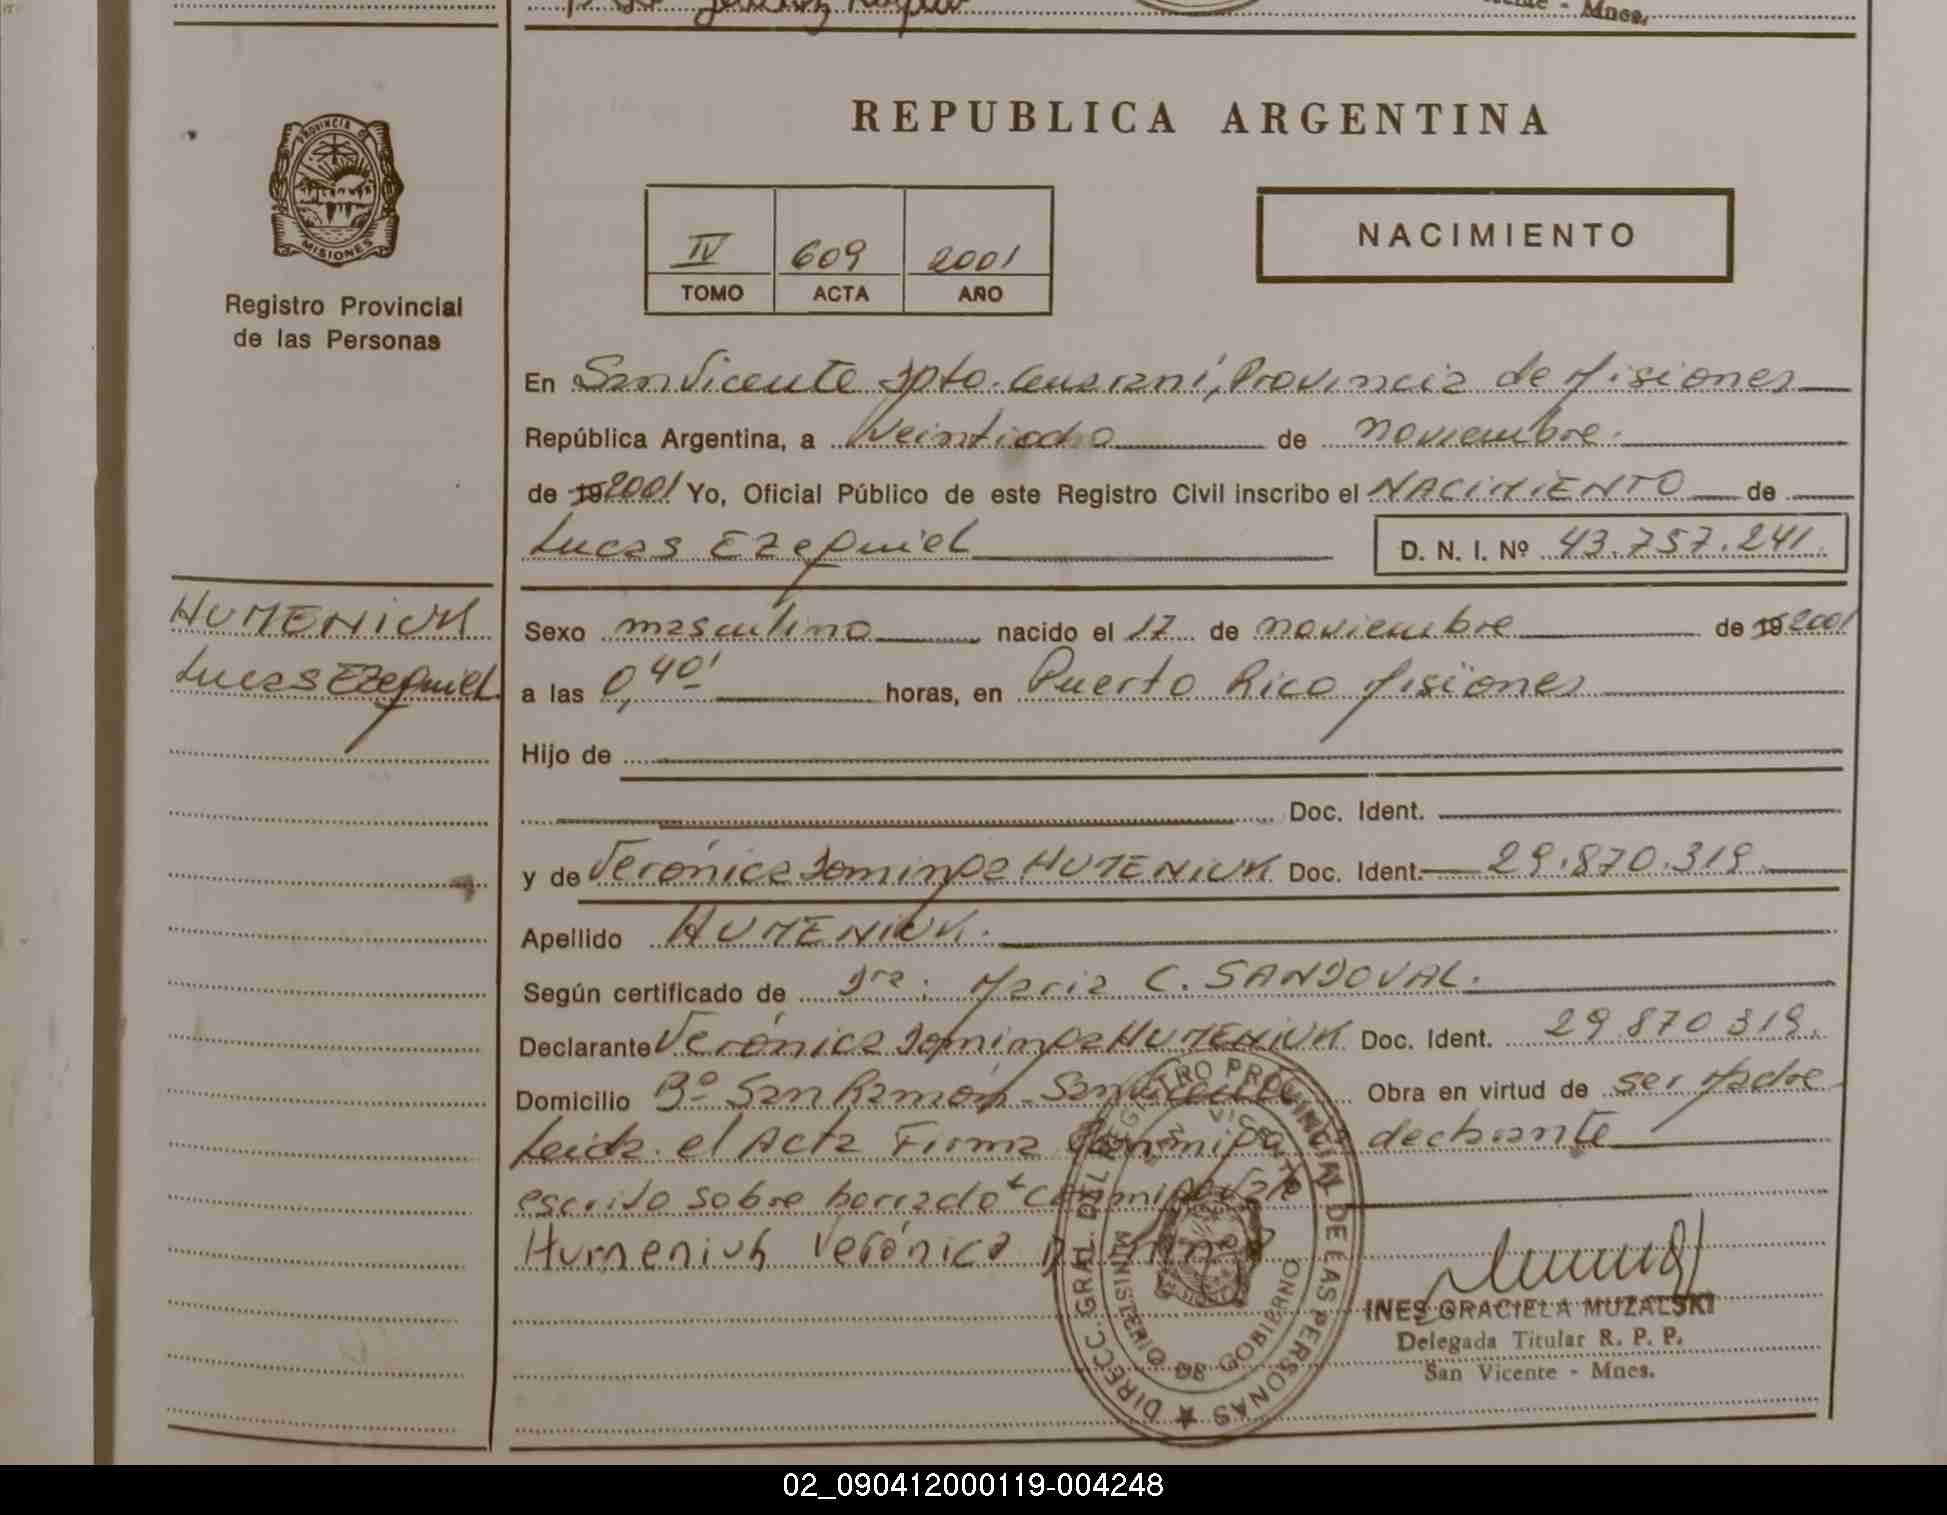 Mnes.
REPUBLICA ARGENTINA
PROVINCIA DE
MISIONES
NACIMIENTO
IV 609 2001
TOMO ACTA AÑO
Registro Provincial
de las Personas
En San Vicente Dpto. Guaraní, Provincia de Misiones
República Argentina, a Veintiocho de noviembre.
de 19 2001 Yo, Oficial Público de este Registro Civil inscribo el NACIMIENTO de
Lucas Ezequiel D. N. I. Nº 43.757.241.
HUMENIUK
Lucas Ezequiel
Sexo masculino nacido el 17 de noviembre de 19 2001
a las 0,40' horas, en Puerto Rico Misiones
Hijo de
Doc. Ident.
y de Verónica Dominga HUMENIUK Doc. Ident. 29.870.319
Apellido HUMENIUK.
Según certificado de Dra: Maria C. SANDOVAL.
Declarante Verónica Dominga HUMENIUK Doc. Ident. 29.870.319.
Domicilio Bº San Ramón - San Vicente Obra en virtud de ser Madre
Leida el Acta Firma Conmigo declarante
escrito sobre borrado "Conmigo" vale
Humeniuk Verónica Dominga
DIRECC. GRAL. DEL REGISTRO PROVINCIAL DE LAS PERSONAS
SAN VICENTE
MINISTERIO DE GOBIERNO
INES GRACIELA MUZALSKI
Delegada Titular R. P. P.
San Vicente - Mnes.
02_090412000119-004248